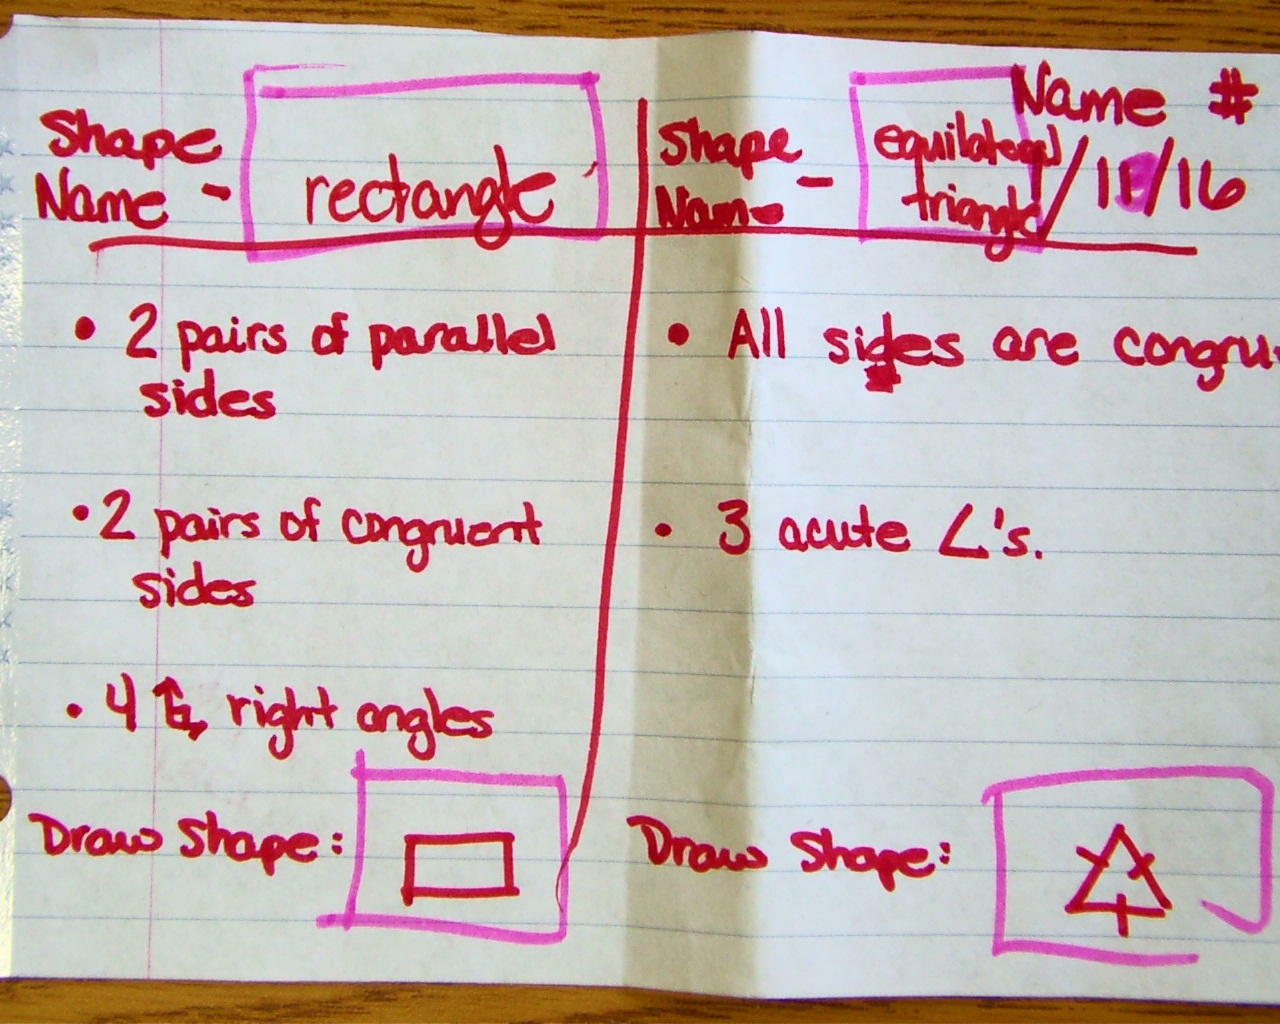 Name #
11/16
Shape
Name - rectangle
2 pairs of parallel
sides
2 pairs of congruent
sides
4 right angles
Draw Shape:
Shape
Name - equilateral
triangle
All sides are congru
3 acute ∠'s.
Draw Shape: